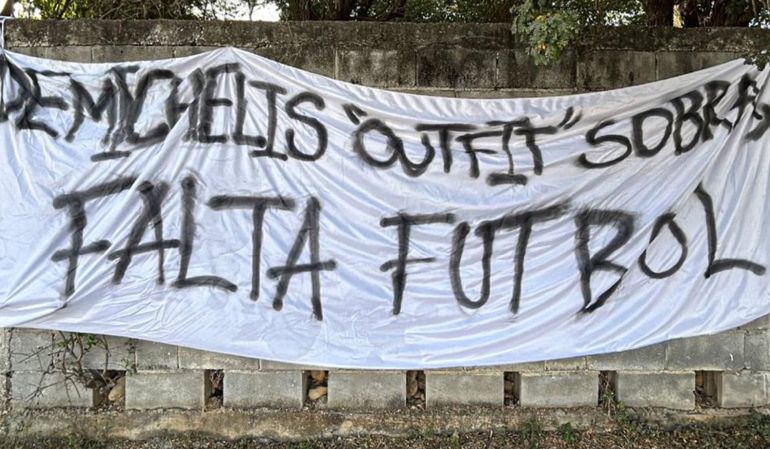 DEMICHELIS "OUTFIT" SOBRA,
FALTA FUTBOL